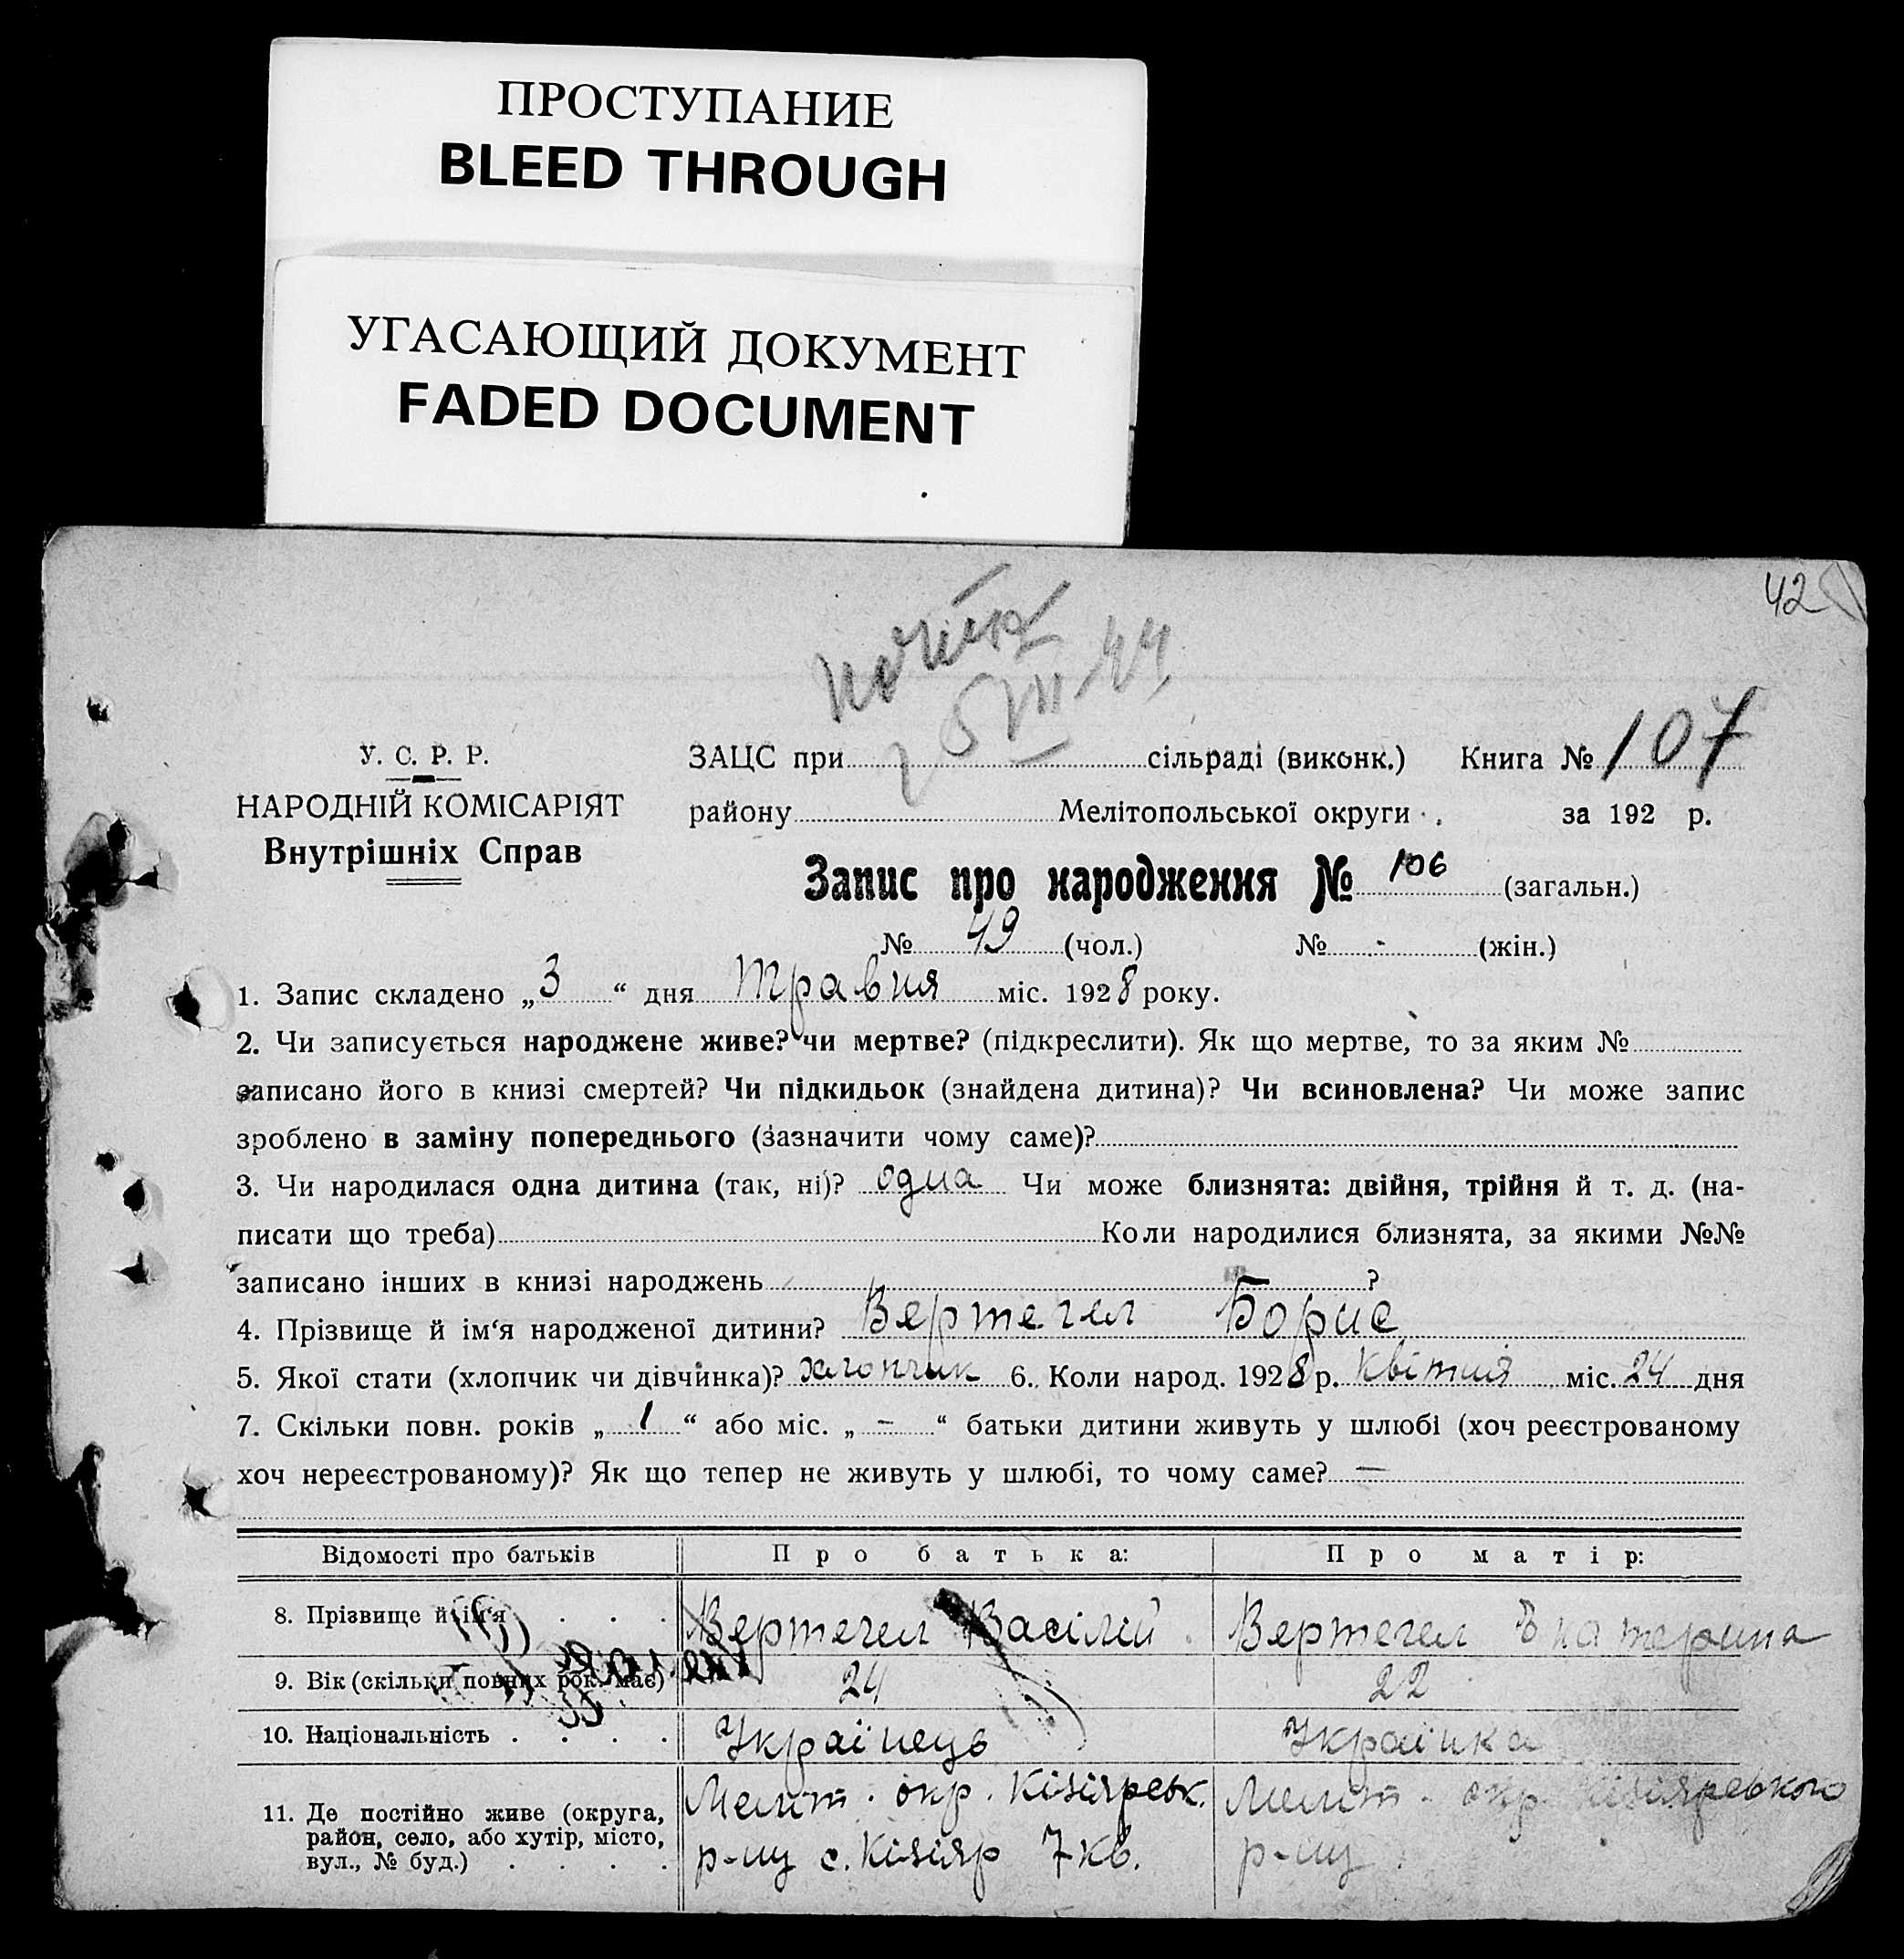 ПРОСТУПАНИЕ
BLEED THROUGH
УГАСАЮЩИЙ ДОКУМЕНТ
FADED DOCUMENT
42
VII-44
У. С. Р. Р.
НАРОДНІЙ КОМІСАРІЯТ
Внутрішніх Справ
ЗАЦС при сільраді (виконк.) Книга № 107
району Мелітопольської округи . за 192 р.
Запис про народження № 106 (загальн.)
№ 49 (чол.) № - (жін.)
1. Запис складено „3“ дня Травня міс. 1928 року.
2. Чи записується народжене живе? чи мертве? (підкреслити). Як що мертве, то за яким №
записано його в книзі смертей? Чи підкидьок (знайдена дитина)? Чи всиновлена? Чи може запис
зроблено в заміну попереднього (зазначити чому саме)?
3. Чи народилася одна дитина (так, ні)? одна Чи може близнята: двійня, трійня й т. д. (на-
писати що треба) Коли народилися близнята, за якими №№
записано інших в книзі народжень ?
4. Прізвище й ім‘я народженої дитини? Вертегел Борис
5. Якої стати (хлопчик чи дівчинка)? хлопчик 6. Коли народ. 1928 р. Квітня міс. 24 дня
7. Скільки повн. років „1“ або міс. „-“ батьки дитини живуть у шлюбі (хоч реєстрованому
хоч нереєстрованому)? Як що тепер не живуть у шлюбі, то чому саме? —
Відомості про батьків Про батька: Про матір:
8. Прізвище й ім‘я . . . Вертегел Васілій . Вертегел Екатерина
9. Вік (скільки повних рок. має) 24 22
10. Національність . . . . Українець Українка
11. Де постійно живе (округа, район, село, або хутір, місто, вул., № буд.) . . . .
Меліт. окр. Кізіярськ. Меліт. окр. Кізіярського
р-ну с. Кізіяр 7 кв. р-ну